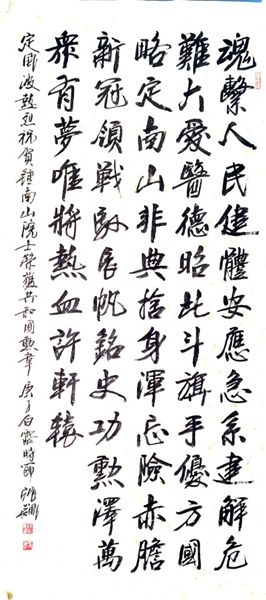 魂繫人民健體安應急系建解危
難大愛醫德昭北斗旗手優方國
略定南山非典捨身渾忘險赤膽
新冠領戰馭長帆銘史功勳澤萬
衆有夢唯將熱血許軒轅
定風波熱烈祝賀鍾南山院士榮獲共和國勳章 庚子白露時節 張